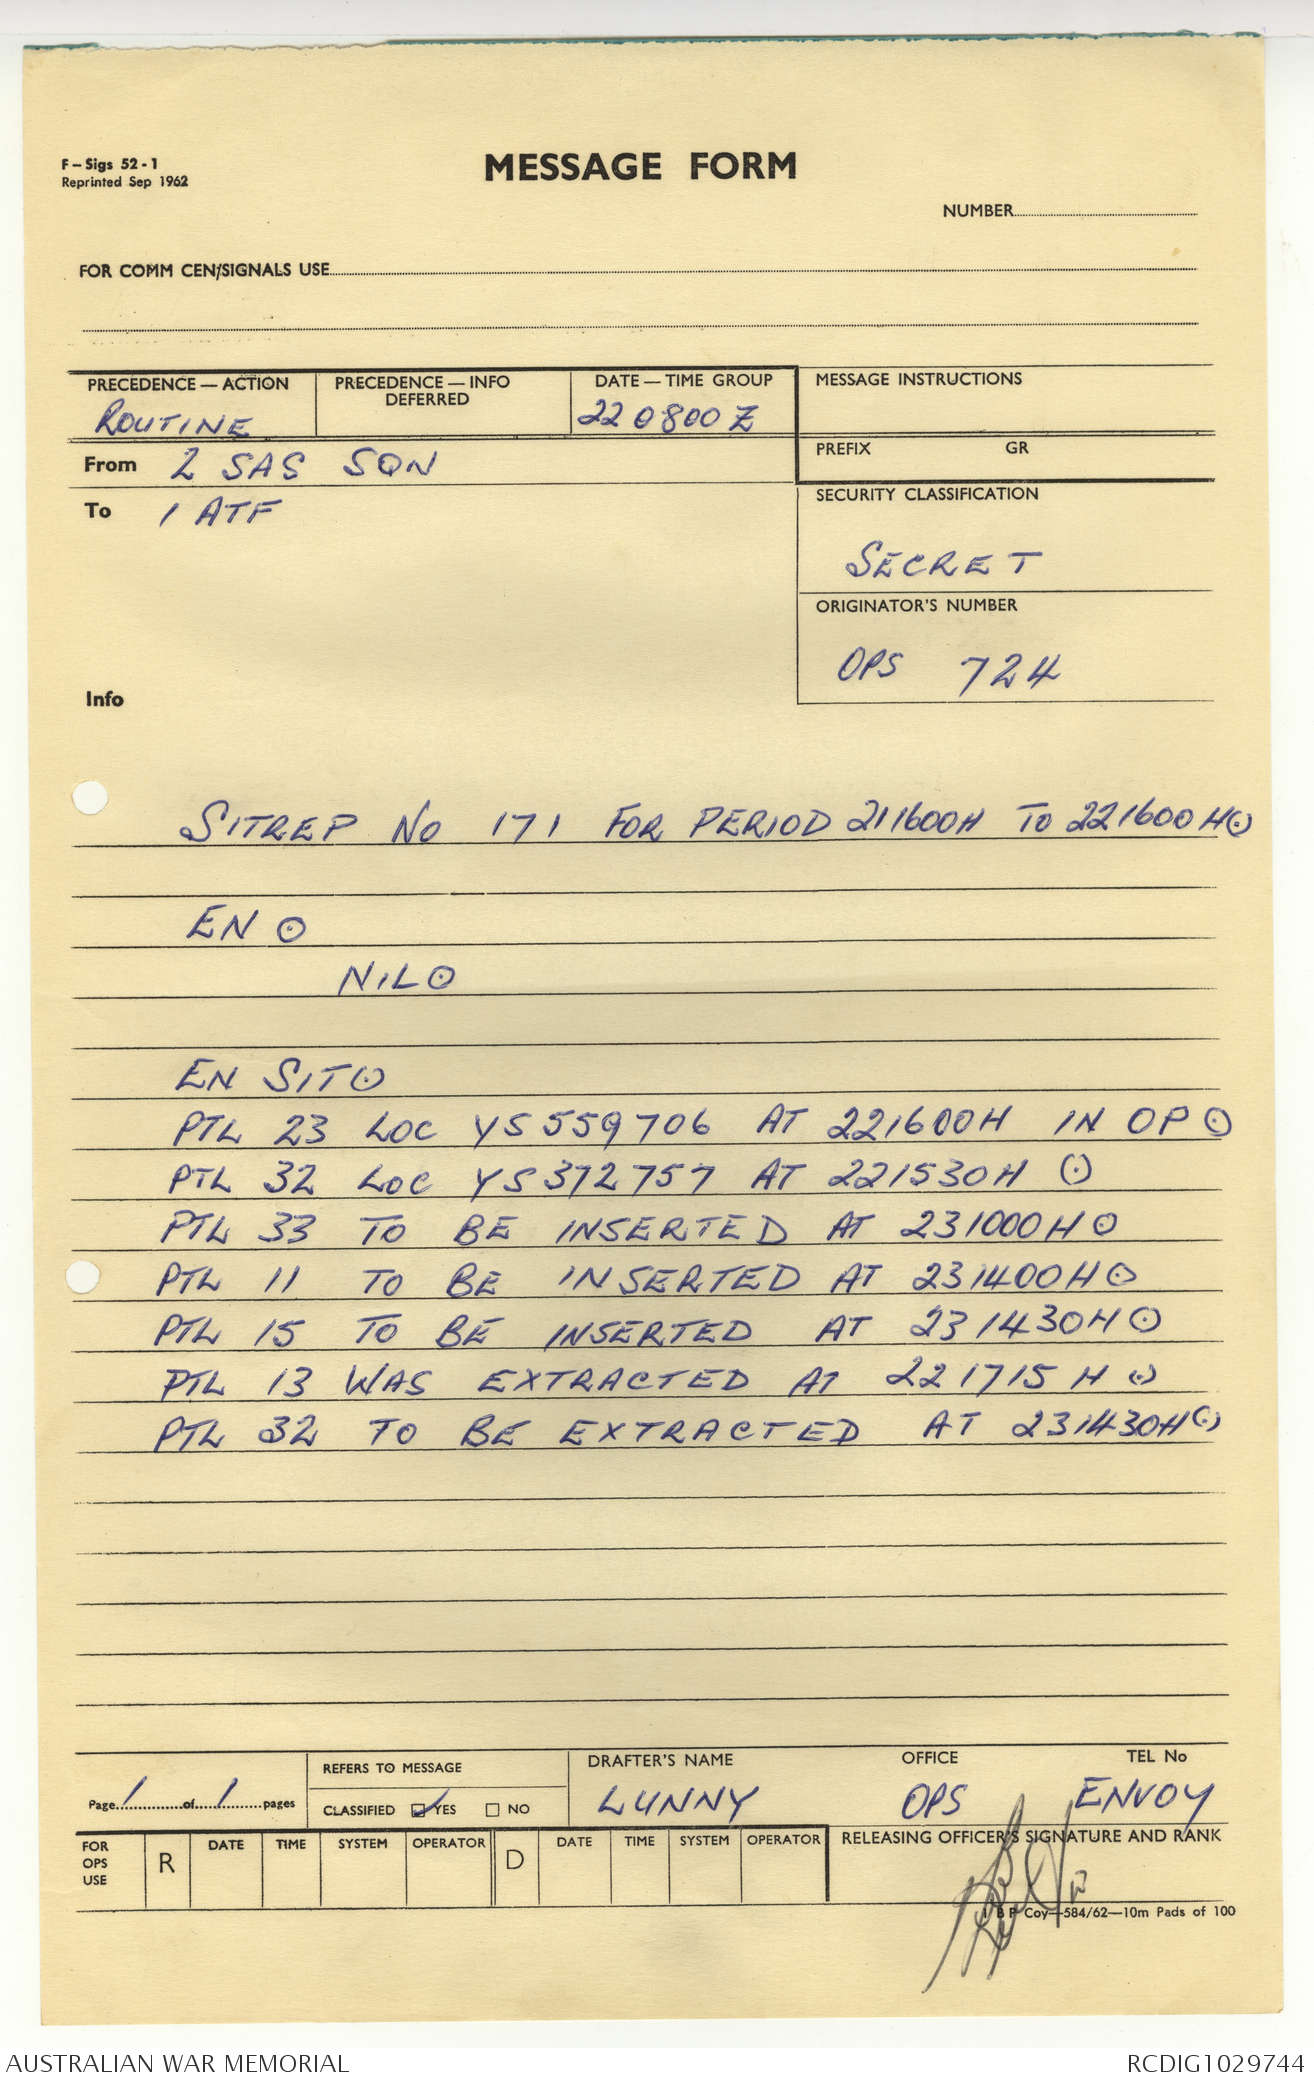 F - Sigs 52 - 1
Reprinted Sep 1962
MESSAGE FORM
NUMBER
FOR COMM CEN/SIGNALS USE
PRECEDENCE — ACTION
ROUTINE
PRECEDENCE — INFO
DEFERRED
DATE — TIME GROUP
220800Z
MESSAGE INSTRUCTIONS
PREFIX GR
From 2 SAS SQN
To 1 ATF
SECURITY CLASSIFICATION
SECRET
ORIGINATOR'S NUMBER
OPS 724
Info
SITREP NO 171 FOR PERIOD 211600H TO 221600H ⊙
EN ⊙
NIL ⊙
EN SIT ⊙
PTL 23 LOC YS 559706 AT 221600H IN OP ⊙
PTL 32 LOC YS 372757 AT 221530H ⊙
PTL 33 TO BE INSERTED AT 231000H ⊙
PTL 11 TO BE INSERTED AT 231400H ⊙
PTL 15 TO BE INSERTED AT 231430H ⊙
PTL 13 WAS EXTRACTED AT 221715H ⊙
PTL 32 TO BE EXTRACTED AT 231430H ⊙
Page 1 of 1 pages
REFERS TO MESSAGE
CLASSIFIED ☑ YES ☐ NO
DRAFTER'S NAME
LUNNY
OFFICE
OPS
TEL No
ENVOY
FOR OPS USE R DATE TIME SYSTEM OPERATOR D DATE TIME SYSTEM OPERATOR
RELEASING OFFICER'S SIGNATURE AND RANK
1 B P Coy—584/62—10m Pads of 100
AUSTRALIAN WAR MEMORIAL
RCDIG1029744